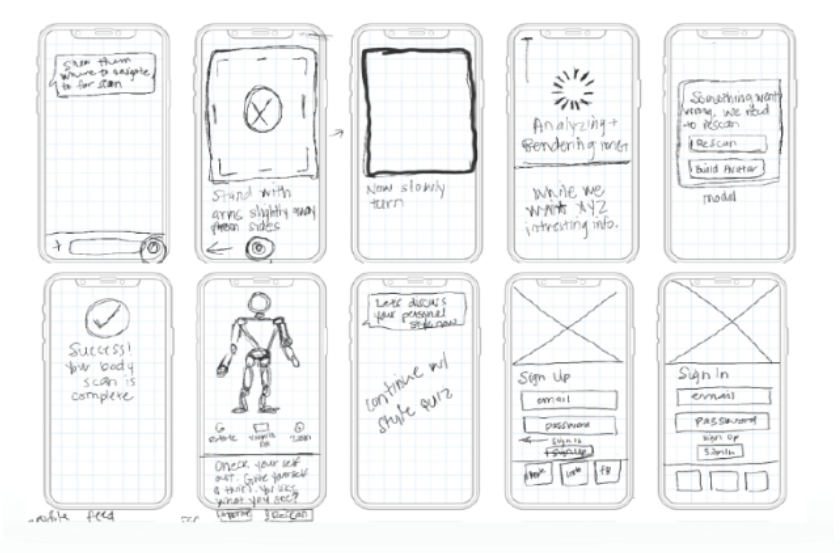 Show them
where to navigate
to for scan
+
Stand with
arms slightly away
from sides
Now slowly
turn
Analyzing +
Rendering
While we
wait XYZ
intresting info.
Something went
wrong, we need
to rescan
Rescan
Build Avatar
modal
Success!
Your body
scan is
complete
rotate
zoom
Check your self
out. Give yourself
a twirl. You like
what you see?
Rescan
Lets discuss
your personal
style now
continue w/
style quiz
Sign Up
email
password
sign in
sign up
FB
Sign In
email
password
sign up
sign in
profile feed